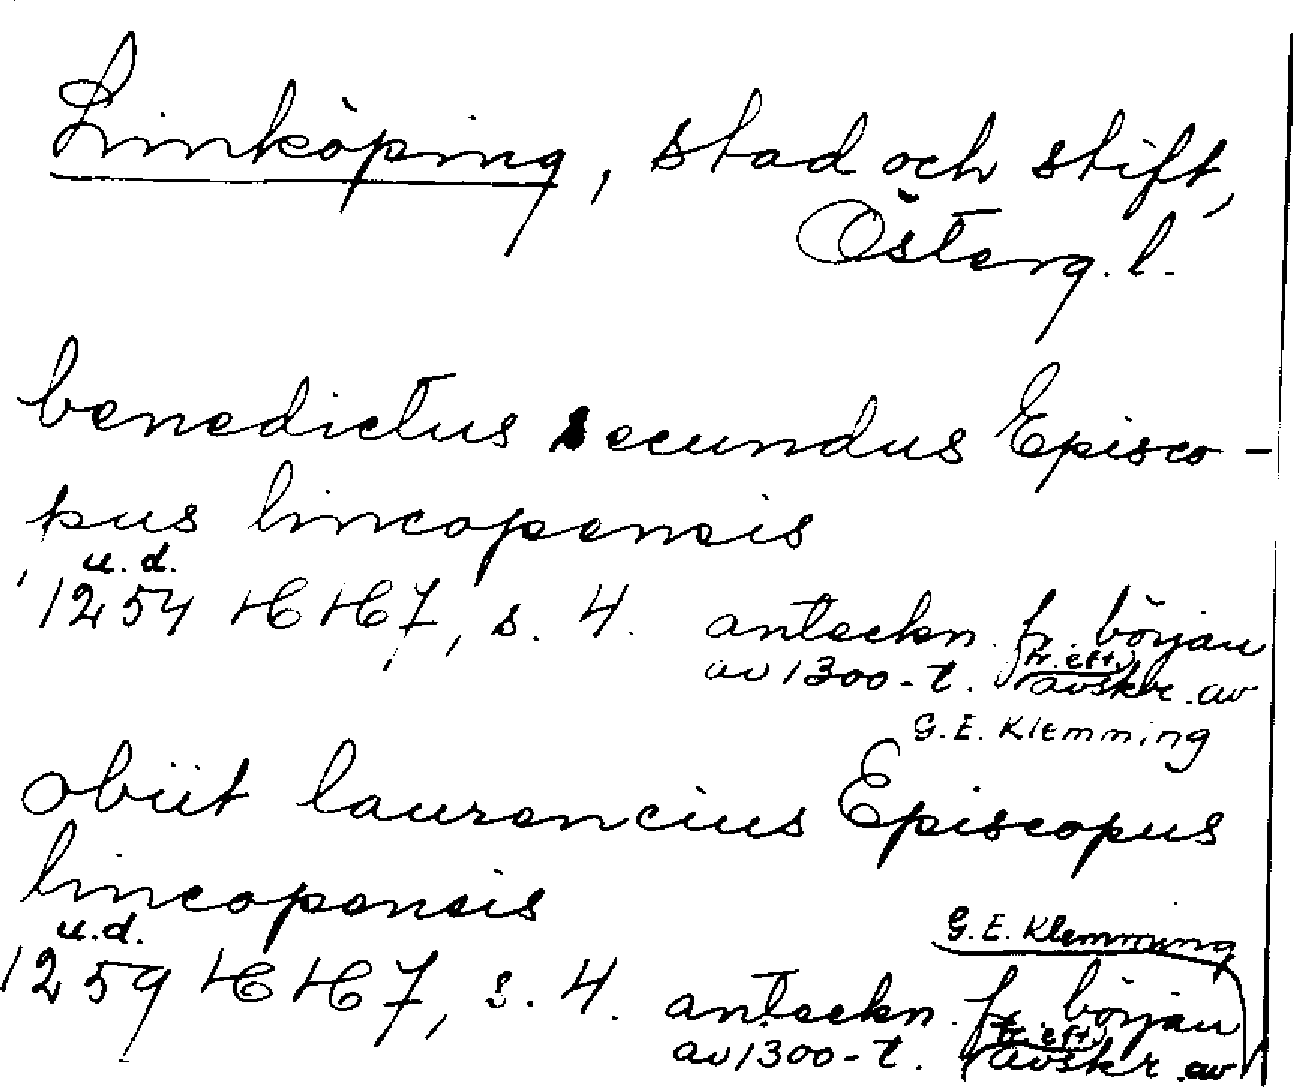 Linköping, stad och stift,
Österg.l.
benedictus secundus Episco-
pus lincopensis
u.d.
1254 HH 7, s. 4. anteckn. fr. början
av 1300-t. (tr. eft. avskr. av
G.E. Klemming
obiit laurencius Episcopus
lincopensis
u.d.
G.E. Klemming
1259 HH 7, s. 4. anteckn. fr. början
av 1300-t. (tr. eft. avskr. av